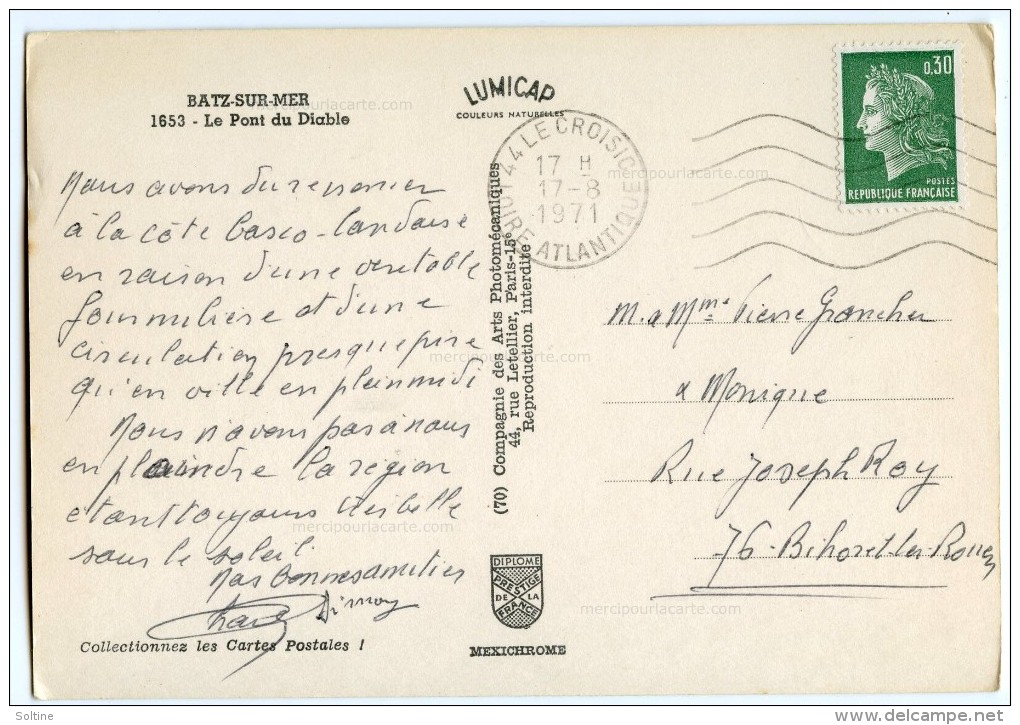 BATZ-SUR-MER
1653 - Le Pont du Diable
LUMICAP
COULEURS NATURELLES
44 LE CROISIC
17 H
17-8
1971
LOIRE ATLANTIQUE
0,30
POSTES
REPUBLIQUE FRANÇAISE
Nous avons du renoncer
à la côte basco-landaise
en raison d'une veritable
fourmilière et d'une
circulation presque pire
qu'en ville en plein midi
Nous n'avons pas à nous
en plaindre la région
etant toujours très belle
sous le soleil.
Nos bonnes amities
Collectionnez les Cartes Postales !
(70) Compagnie des Arts Photomécaniques
44, rue Letellier, Paris-15e
Reproduction interdite
DIPLOME
PRESTIGE
DE LA
FRANCE
MEXICHROME
M. & Mme Pierre Grancher
& Monique
Rue Joseph Roy
76 - Bihorel-les-Rouen
mercipourlacarte.com
mercipourlacarte.com
mercipourlacarte.com
mercipourlacarte.com
mercipourlacarte.com
Soltine
delcampe.net